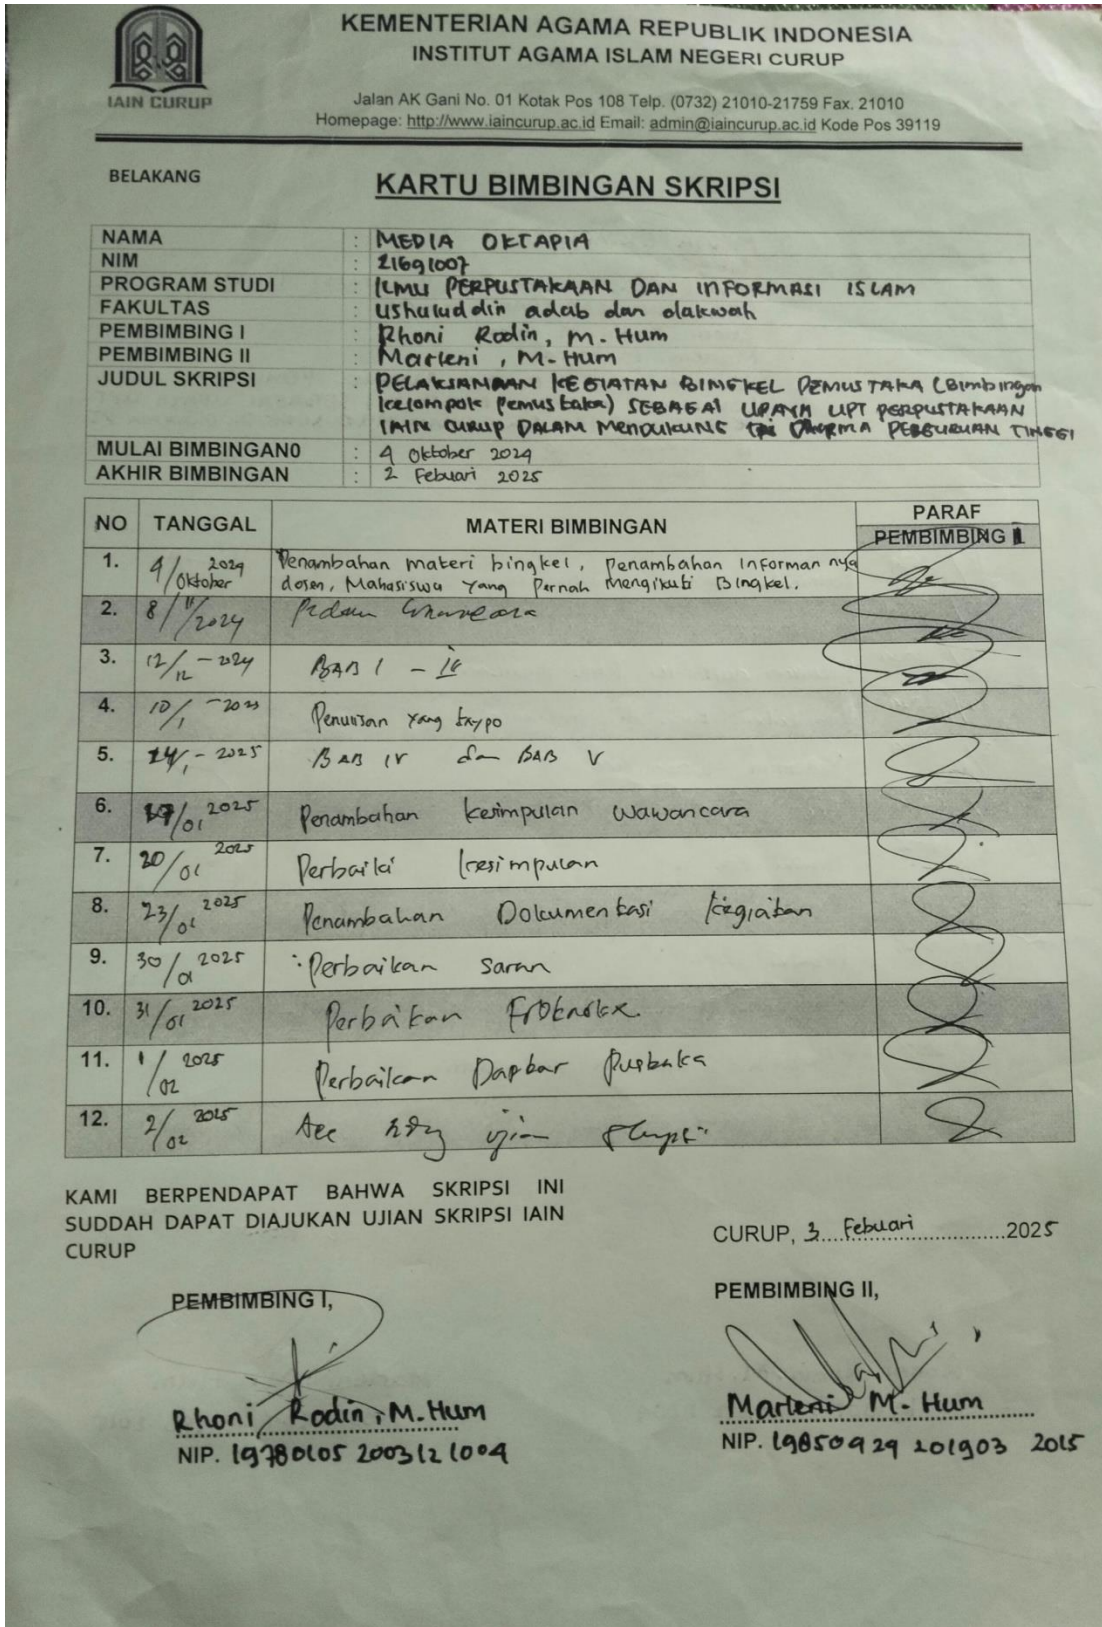 KEMENTERIAN AGAMA REPUBLIK INDONESIA
INSTITUT AGAMA ISLAM NEGERI CURUP
IAIN CURUP
Jalan AK Gani No. 01 Kotak Pos 108 Telp. (0732) 21010-21759 Fax. 21010
Homepage: http://www.iaincurup.ac.id Email: admin@iaincurup.ac.id Kode Pos 39119
BELAKANG
KARTU BIMBINGAN SKRIPSI
NAMA : MEDIA OKTAPIA
NIM : 21691007
PROGRAM STUDI : ILMU PERPUSTAKAAN DAN INFORMASI ISLAM
FAKULTAS : Ushuluddin adab dan dakwah
PEMBIMBING I : Rhoni Rodin, M. Hum
PEMBIMBING II : Marleni, M. Hum
JUDUL SKRIPSI : PELAKSANAAN KEGIATAN BINGKEL PEMUSTAKA (Bimbingan
kelompok Pemustaka) SEBAGAI UPAYA UPT PERPUSTAKAAN
IAIN CURUP DALAM MENDUKUNG TRI DHARMA PERGURUAN TINGGI
MULAI BIMBINGAN0 : 4 Oktober 2024
AKHIR BIMBINGAN : 2 Febuari 2025
NO TANGGAL MATERI BIMBINGAN PARAF
PEMBIMBING I
1. 4/Oktober 2024 Penambahan materi bingkel, penambahan Informan nya
dosen, Mahasiswa yang Pernah Mengikuti Bingkel.
2. 8/11/2024
3. 12/12 - 2024 BAB I -
4. 10/1 - Penulisan yang taypo
5. 14/1 - 2025 BAB IV dan BAB V
6. 17/01 2025 Penambahan kesimpulan wawancara
7. 20/01 2025 Perbaiki kesimpulan
8. 23/01 2025 Penambahan Dokumentasi kegiatan
9. 30/01 2025 Perbaikan saran
10. 31/01 2025 Perbaikan
11. 1/02 2025 Perbaikan Dapbar Pustaka
12. 2/02 2025 Acc ujian skripsi
KAMI BERPENDAPAT BAHWA SKRIPSI INI
SUDDAH DAPAT DIAJUKAN UJIAN SKRIPSI IAIN
CURUP
CURUP, 3 Febuari 2025
PEMBIMBING I,
PEMBIMBING II,
Rhoni Rodin, M. Hum
Marleni M. Hum
NIP. 19780105 200312 1004
NIP. 19850929 201903 2015